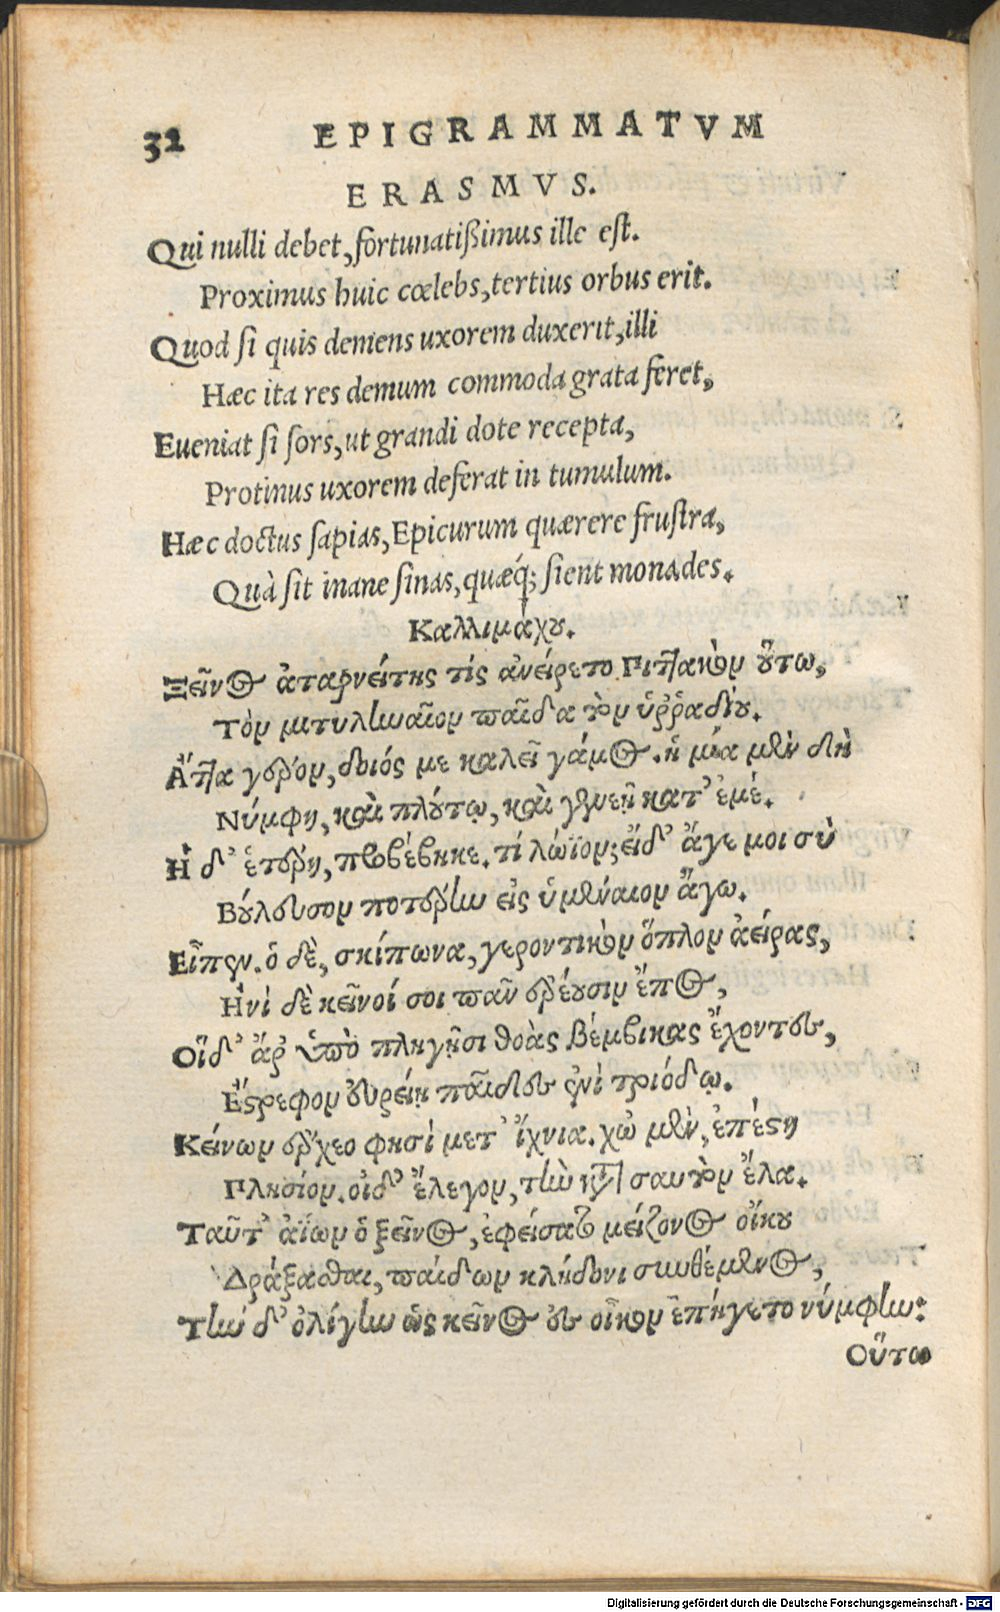 32 EPIGRAMMATVM
ERASMVS.
Qui nulli debet, fortunatißimus ille est.
Proximus huic cœlebs, tertius orbus erit.
Quod si quis demens uxorem duxerit, illi
Hæc ita res demum commoda grata feret,
Eueniat si sors, ut grandi dote recepta,
Protinus uxorem deferat in tumulum.
Hæc doctus sapias, Epicurum quærere frustra,
Quà sit inane sinas, quæq́; sient monades.
Καλλιμάχου.
Ξεῖνος ἀταρνείτης τίς ἀνείρετο Πιττακὸν οὕτω,
Τὸν μιτυληναῖον παῖδα τὸν ὑῤῥαδίου.
Ἄττα γέρον, δοιός με καλεῖ γάμος. ἡ μία μὲν δὴ
Νύμφη, καὶ πλούτῳ, καὶ γενεῇ κατ' ἐμέ.
Ἡ δ' ἑτέρη, προβέβηκε. τί λώϊον; εἴδ' ἄγε μοι σὺ
Βούλευσον ποτέρην εἰς ὑμέναιον ἄγω.
Εἶπεν. ὁ δὲ, σκίπωνα, γεροντικὸν ὅπλον ἀείρας,
Ἠνὶ δὲ κεῖνοί σοι πᾶν ἐρέουσιν ἔπος,
Οἵδ' ἄρ' ὑπὸ πληγῇσι θοὰς βέμβικας ἔχοντες,
Ἔστρεφον εὐρείῃ παῖδες ἐνὶ τριόδῳ.
Κείνων ἔρχεο φησὶ μετ' ἴχνια. χὠ μὲν, ἐπέστη
Πλησίον. οἱδ' ἔλεγον, τὴν κατὰ σαυτὸν ἔλα.
Ταῦτ' ἀΐων ὁ ξεῖνος, ἐφείσατο μείζονος οἴκου
Δράξασθαι, παίδων κληδόνι συνθέμενος,
Τὴν δ' ὀλίγην ὡς κεῖνος ἐς οἶκον ἐπήγετο νύμφην:
Οὕτω
Digitalisierung gefördert durch die Deutsche Forschungsgemeinschaft - DFG